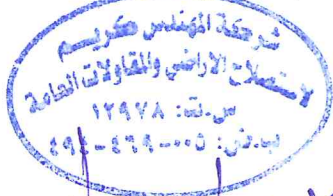 شركة المهندس كريم
لاستصلاح الاراضى والمقاولات العامة
س.ت: ١٢٩٧٨
ب.ض: ٠٠٥-٤٦٩-٤٩٤